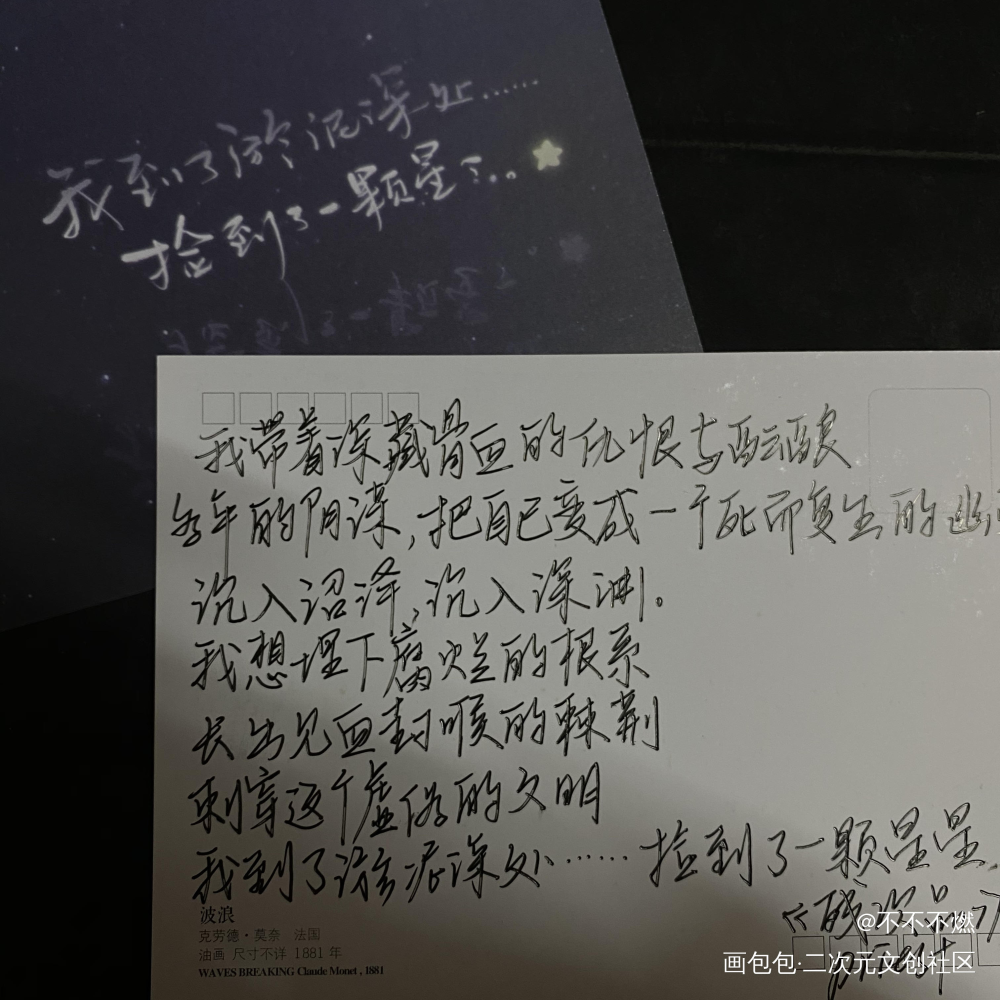 我到了淤泥深处……
捡到了一颗星星..
我带着深藏骨血的仇恨与酝酿
多年的阴谋,把自己变成一个死而复生的幽
沉入沼泽,沉入深渊。
我想埋下腐烂的根系
长出见血封喉的荆棘
刺穿这个虚伪的文明
我到了淤泥深处……捡到了一颗星星..
《残次品》
波浪
克劳德·莫奈 法国
油画 尺寸不详 1881 年
WAVES BREAKING Claude Monet , 1881
@不不不燃
画包包·二次元文创社区